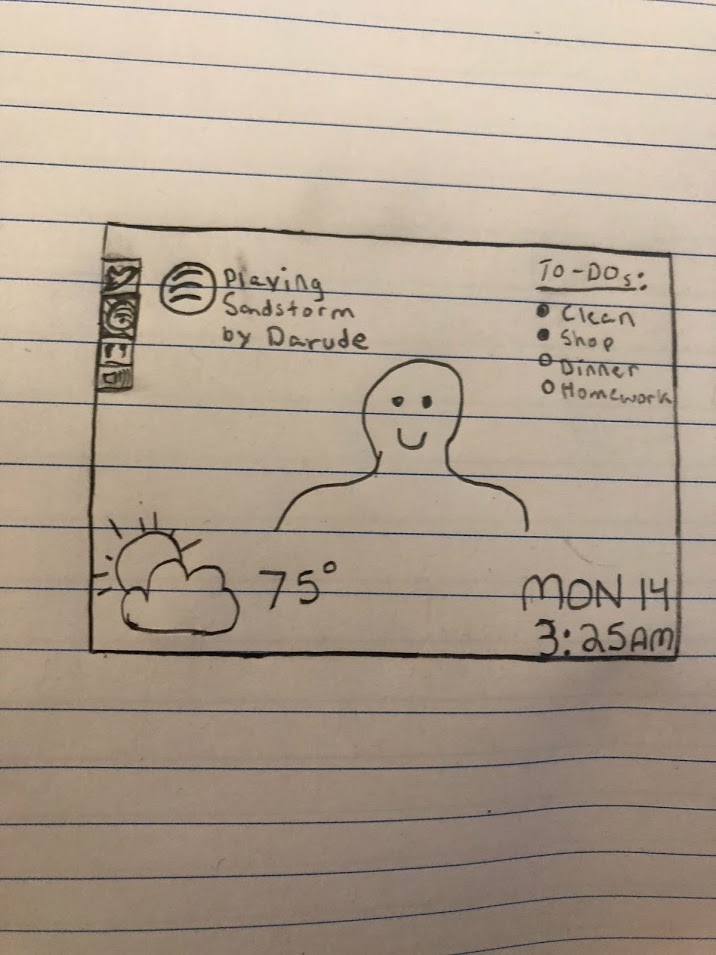 Playing
Sandstorm
by Darude
TO-DOs:
Clean
Shop
Dinner
Homework
75°
MON 14
3:25AM